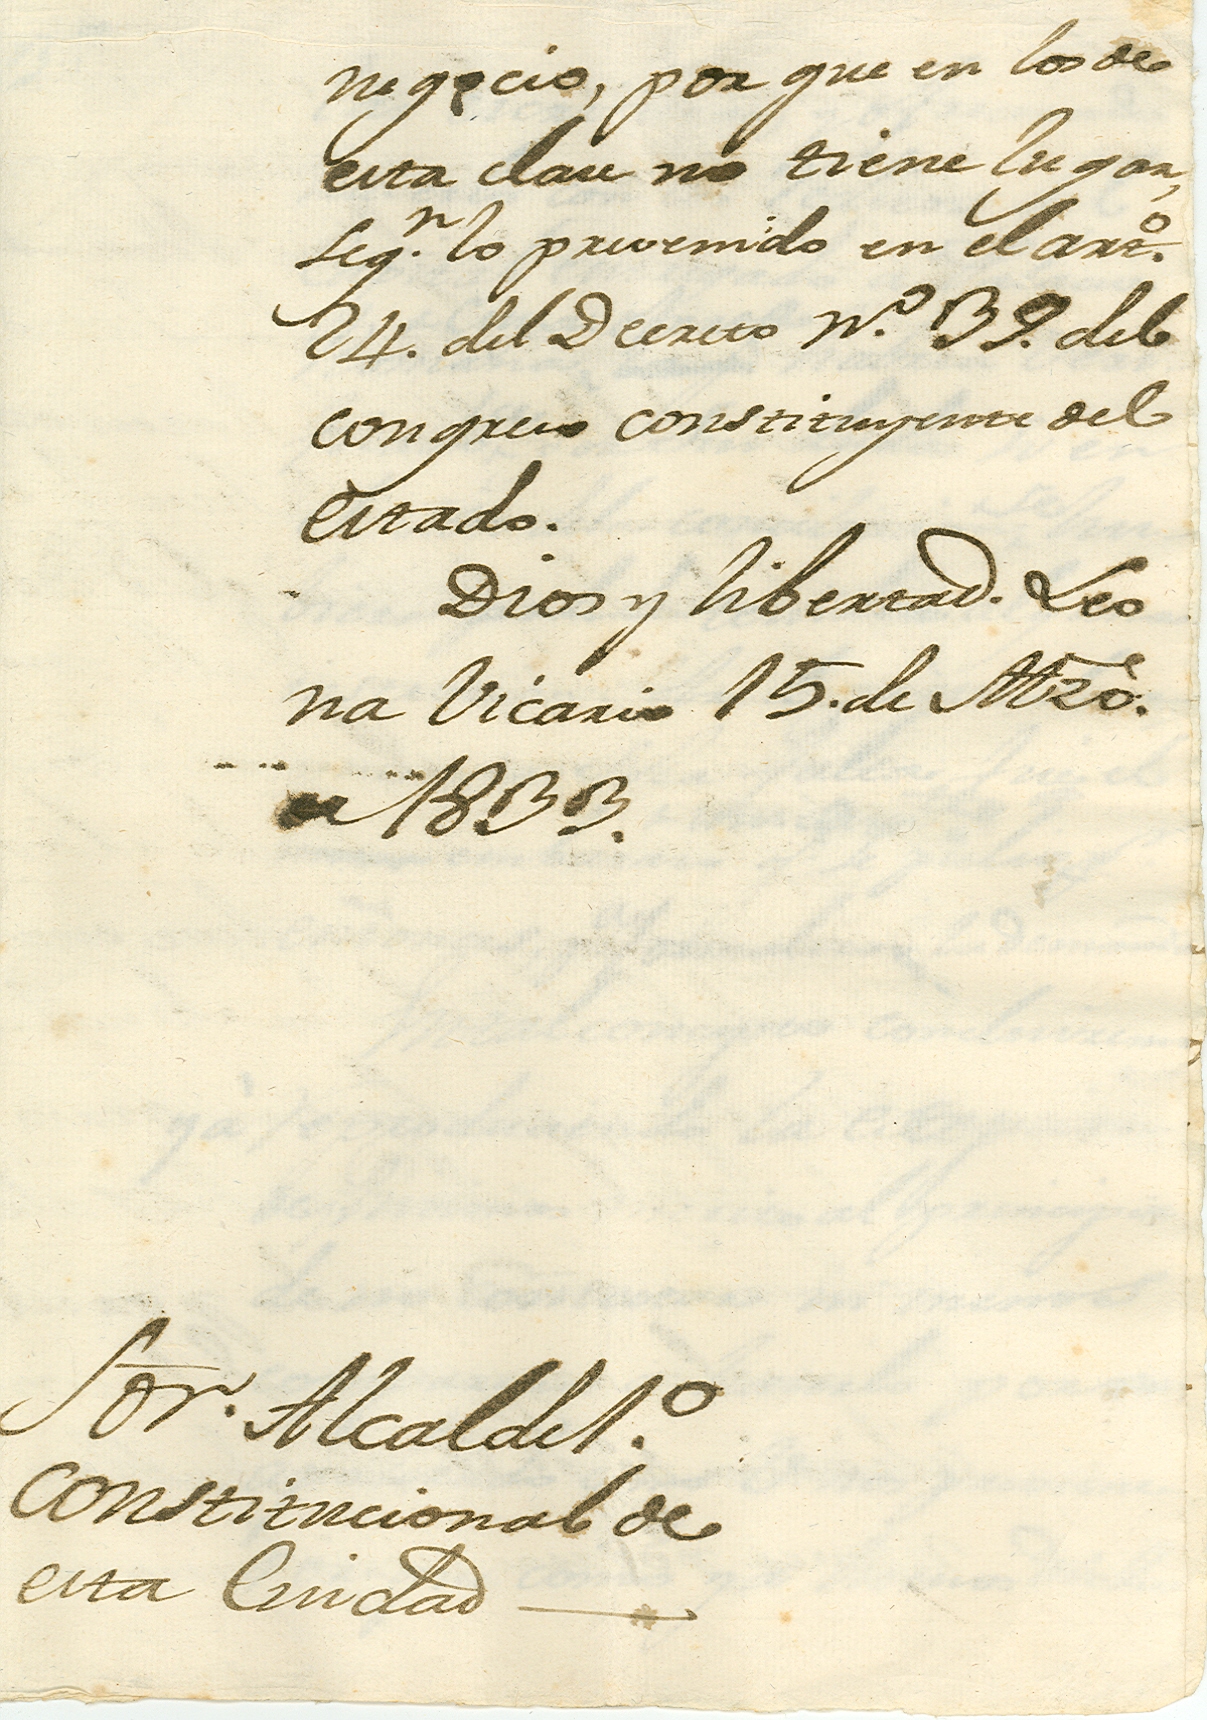 negocio, por que en los de
esta clase no tiene lugar,
seg.n lo prevenido en el art.o
24. del Decreto n.o 39. del
congreso constituyente del
estado.
Dios y libertad. Leo
na Vicario 15. de Mzo.
de 1833.
Sor. Alcalde 1.o
constitucional de
esta Ciudad